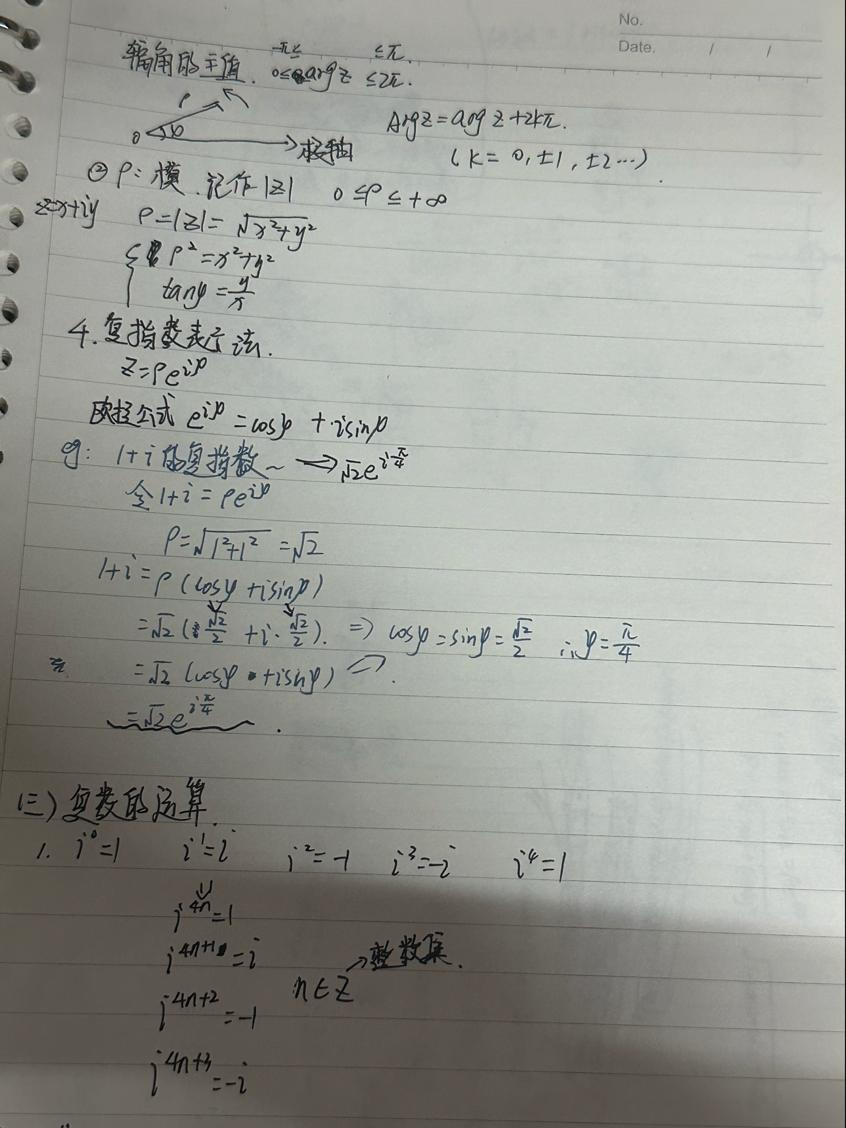 No.
Date. / /
辐角的主值. -π≤ ≤π.
0≤ argz ≤2π.
ρ
0 φ 极轴
Argz=argz+2kπ.
(k=0,±1,±2…).
② ρ:模.记作|z| 0≤ρ≤+∞
z=x+iy ρ=|z|=√x²+y²
{ ρ²=x²+y²
tanφ=y/x
4.复指数表示法.
z=ρe^{iφ}
欧拉公式 e^{iφ}=cosφ+isinφ
eg: 1+i的复指数~ → √2e^{iπ/4}
令1+i=ρe^{iφ}
ρ=√1²+1²=√2
1+i=ρ(cosφ+isinφ)
=√2(√2/2+i·√2/2). ⇒ cosφ=sinφ=√2/2 ∴φ=π/4
=√2(cosφ+isinφ)
=√2e^{iπ/4}.
(三)复数的运算.
1. i⁰=1 i¹=i i²=-1 i³=-i i⁴=1
i^{4n}=1
i^{4n+1}=i
→整数集.
n∈Z
i^{4n+2}=-1
i^{4n+3}=-i